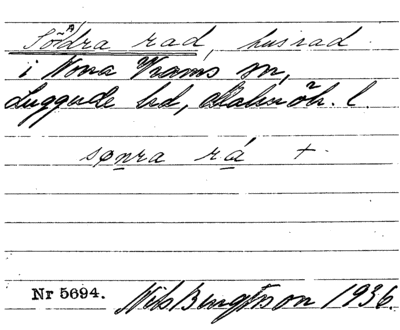 Södra rad, husrad
i Norra Vrams sn,
Luggude hd, Malmöh. l.
sønra rá +
Nr 5694. Nils Bengtsson 1936.